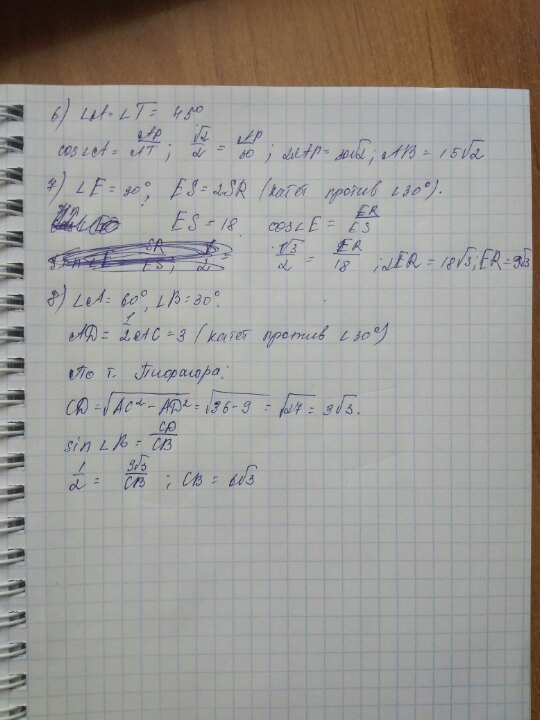 6) ∠A = ∠T = 45°
cos∠A = AP/AT ; √2/2 = AP/30 ; 2AP = 30√2 ; AB = 15√2
7) ∠E = 30°, ES = 2SR (катет против ∠30°).
ES = 18 cos∠E = ER/ES
√3/2 = ER/18 ; 2ER = 18√3 ; ER = 9√3
8) ∠A = 60°, ∠B = 30°.
AD = 1/2 AC = 3 (катет против ∠30°)
По т. Пифагора:
CD = √AC² - AD² = √36-9 = √27 = 3√3.
sin∠B = CD/CB
1/2 = 3√3/CB ; CB = 6√3